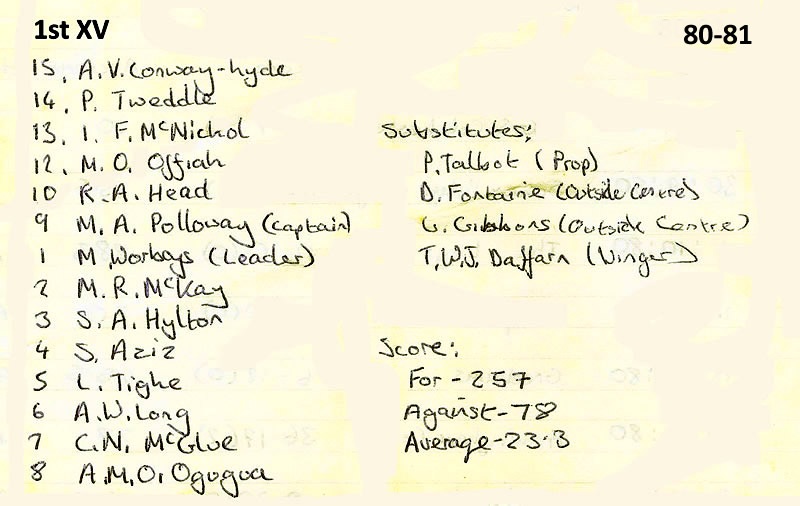 1st XV
80-81
15, A.V. Conway-hyde
14, P. Tweddle
13, I. F. McNichol
12, M. O. Offiah
10 R.A. Head
9 M. A. Polloway (Captain)
1 M Worboys (Leader)
2 M. R. McKay
3 S. A. Hylton
4 S. Aziz
5 L. Tighe
6 A.W. Long
7 C.N. McGlue
8 A.M.O. Ogugua
Substitutes;
P. Talbot (Prop)
D. Fontaine (Outside Centre)
G. Gibbons (Outside Centre)
T.W.J. Daffarn (Winger)
Score:
For - 257
Against - 78
Average - 23.3